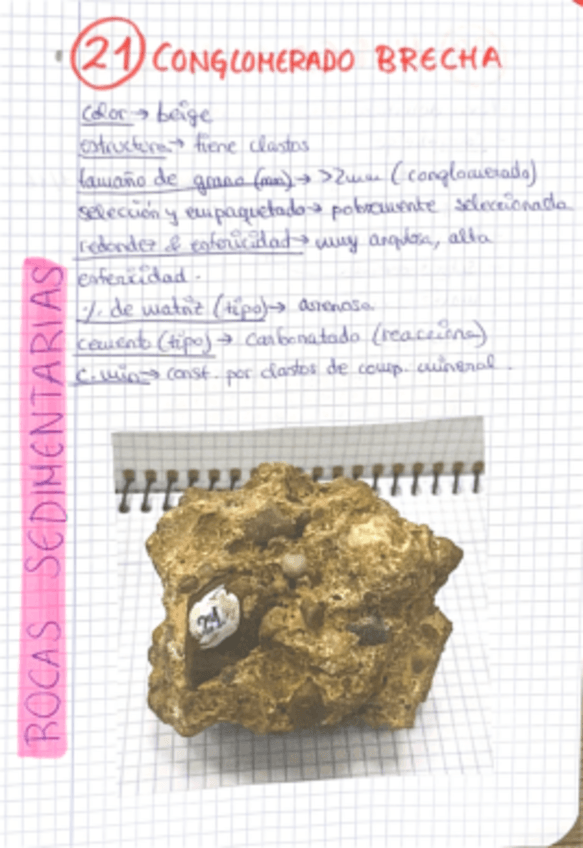 21 CONGLOMERADO BRECHA
color → beige
estructura → tiene clastos
tamaño de grano (mm) → >2mm (conglomerado)
selección y empaquetado → pobremente seleccionada
redondez & esfericidad → muy angulosa, alta
esfericidad.
% de matriz (tipo) → arenosa
cemento (tipo) → carbonatado (reacciona)
c. min → const. por clastos de comp. mineral.
ROCAS SEDIMENTARIAS
21